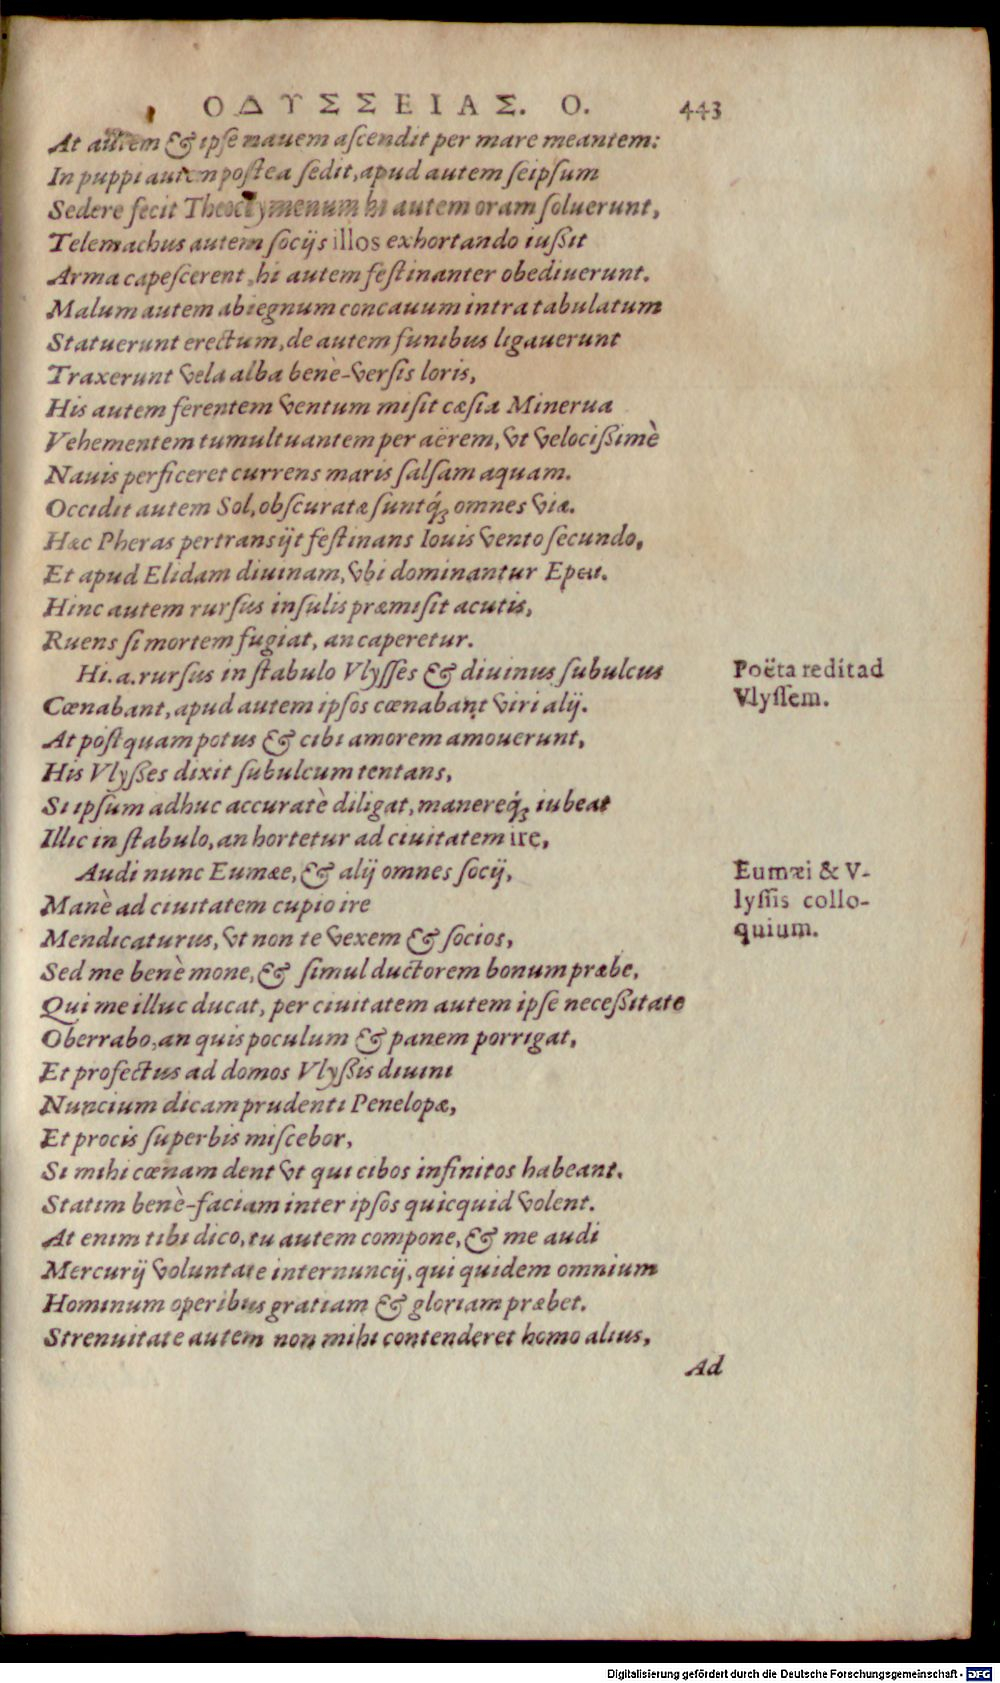 ΟΔΥΣΣΕΙΑΣ. Ο. 443
At autem & ipse nauem ascendit per mare meantem:
In puppi autem postea sedit, apud autem seipsum
Sedere fecit Theoclymenum hi autem oram soluerunt,
Telemachus autem socijs illos exhortando iußit
Arma capescerent, hi autem festinanter obediuerunt.
Malum autem abiegnum concauum intra tabulatum
Statuerunt erectum, de autem funibus ligauerunt
Traxerunt vela alba benè-versis loris,
His autem ferentem ventum misit cæsia Minerua
Vehementem tumultuantem per aërem, vt velocißimè
Nauis perficeret currens maris salsam aquam.
Occidit autem Sol, obscuratæ suntq́; omnes viæ.
Hæc Pheras pertransijt festinans Iouis vento secundo,
Et apud Elidam diuinam, vbi dominantur Epei.
Hinc autem rursus insulis præmisit acutis,
Ruens si mortem fugiat, an caperetur.
Hi. a. rursus in stabulo Vlysses & diuinus subulcus
Cœnabant, apud autem ipsos cœnabant viri alij.
At postquam potus & cibi amorem amouerunt,
His Vlyßes dixit subulcum tentans,
Si ipsum adhuc accuratè diligat, manereq́; iubeat
Illic in stabulo, an hortetur ad ciuitatem ire,
Audi nunc Eumæe, & alij omnes socij,
Manè ad ciuitatem cupio ire
Mendicaturus, vt non te vexem & socios,
Sed me benè mone, & simul ductorem bonum præbe,
Qui me illuc ducat, per ciuitatem autem ipse neceßitate
Oberrabo, an quis poculum & panem porrigat,
Et profectus ad domos Vlyßis diuini
Nuncium dicam prudenti Penelopæ,
Et procis superbis miscebor,
Si mihi cœnam dent vt qui cibos infinitos habeant.
Statim benè-faciam inter ipsos quicquid volent.
At enim tibi dico, tu autem compone, & me audi
Mercurij voluntate internuncij, qui quidem omnium
Hominum operibus gratiam & gloriam præbet.
Strenuitate autem non mihi contenderet homo alius,
Ad
Poëta redit ad
Vlyssem.
Eumæi & V-
lyssis collo-
quium.
Digitalisierung gefördert durch die Deutsche Forschungsgemeinschaft - DFG